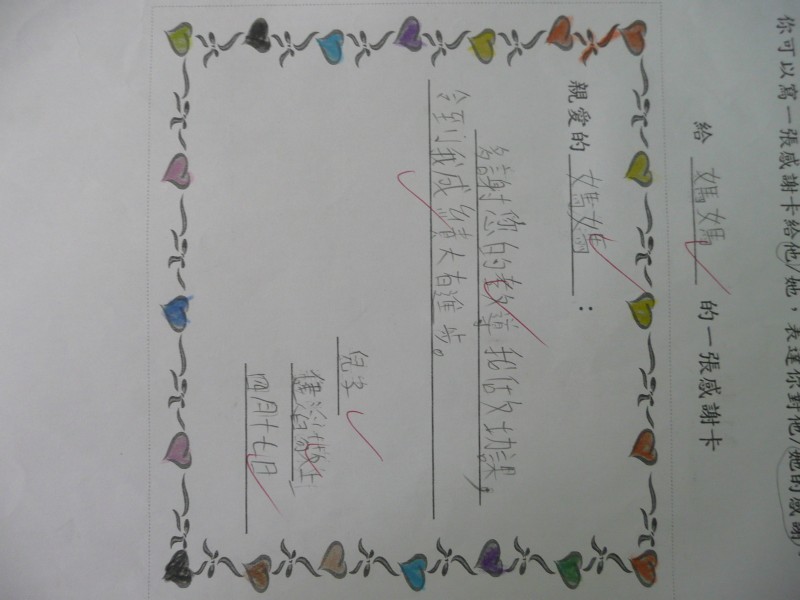 你可以寫一張感謝卡給他/她，表達你對他/她的感謝
給 媽媽 的一張感謝卡
親愛的 媽媽：
多謝您的教導我做功課，
令到我成績大有進步。
兒子
敬上
四月十七日